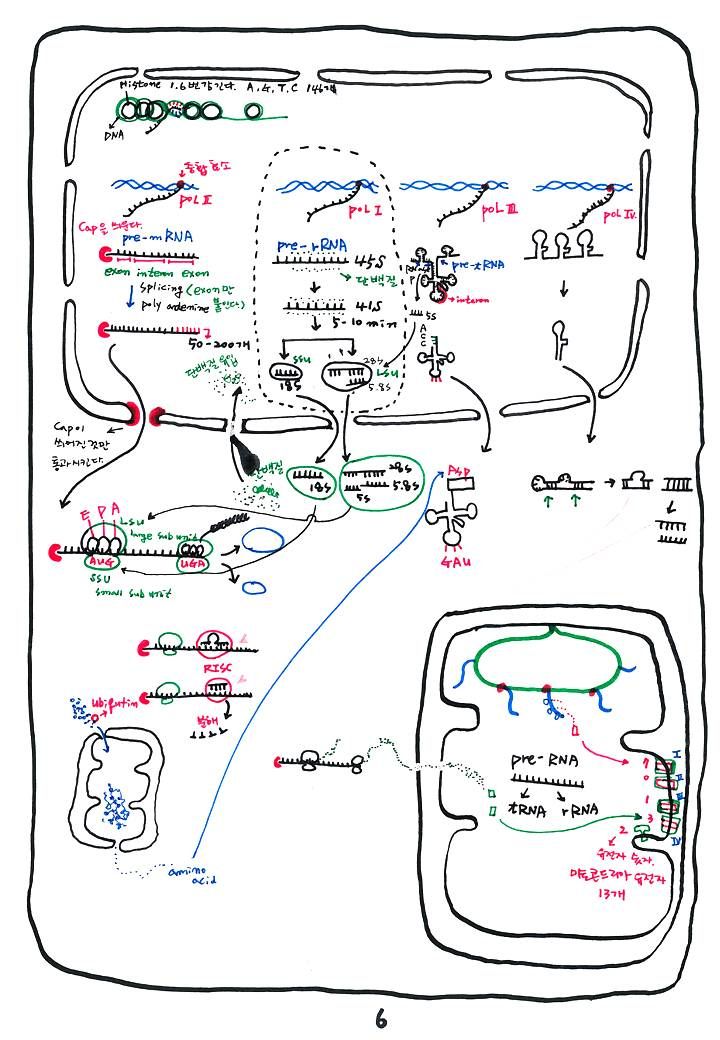 Histone 1.6번 감긴다. A, G, T, C 146개
DNA
종합효소
pol II
pol I
pol III
pol IV.
Cap을 씌운다.
pre-mRNA
exon interon exon
splicing (exon만
poly ardenine 붙인다)
50-200개
pre-rRNA
45S
단백질
41S
5-10 min
SSU
18S
28S
LSU
5.8S
pre-tRNA
interon
5S
A
C
C
단백질 유입
Cap이
씌어진 것만
통과시킨다.
단백질
18S
28S
5.8S
5S
Asp
GAU
E P A
LSU
large sub unit
AUG
UGA
SSU
small sub unit
RISC
분해
ubifutin
amino
acid
pre-RNA
tRNA rRNA
7
0
1
3
2
I
II
III
IV
유전자 숫자.
미토콘드리아 유전자
13개
6